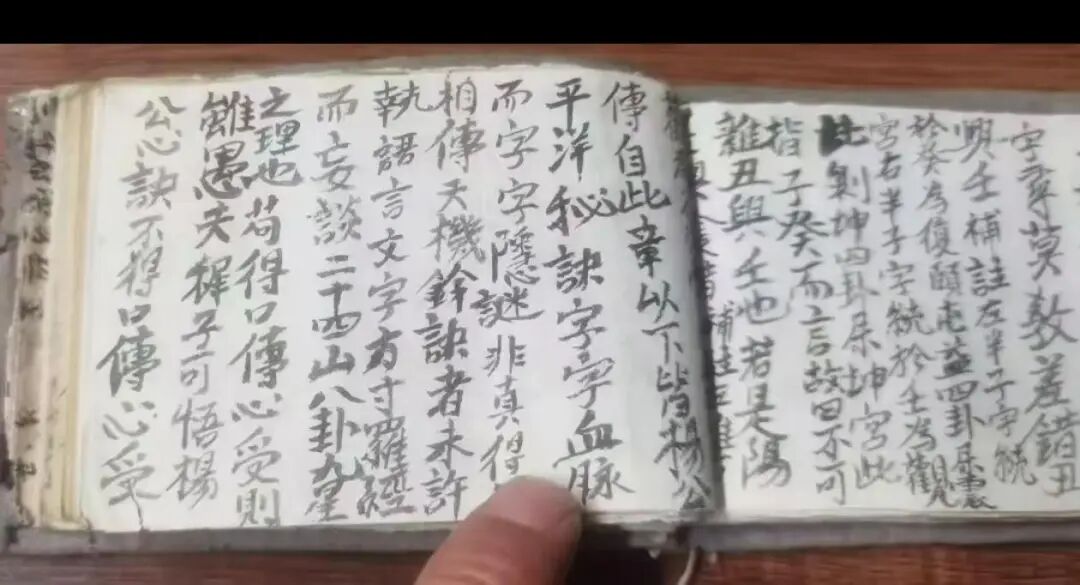 字章莫教差錯丑
與壬補註左半子字統
於癸為復頤屯益四卦屬震
宮右半子字統於壬為觀
比剝坤四卦屬坤宮此
指子癸而言故曰不可
雜丑與壬也若是陽
傳自此章以下皆楊公
平洋秘訣字字血脉
而字字隱謎非真得
相傳天機鈐訣者未許
執語言文字方寸羅經
而妄談二十四山八卦九星
之理也苟得口傳心受則
雖愚夫穉子可悟楊
公心訣不得口傳心受